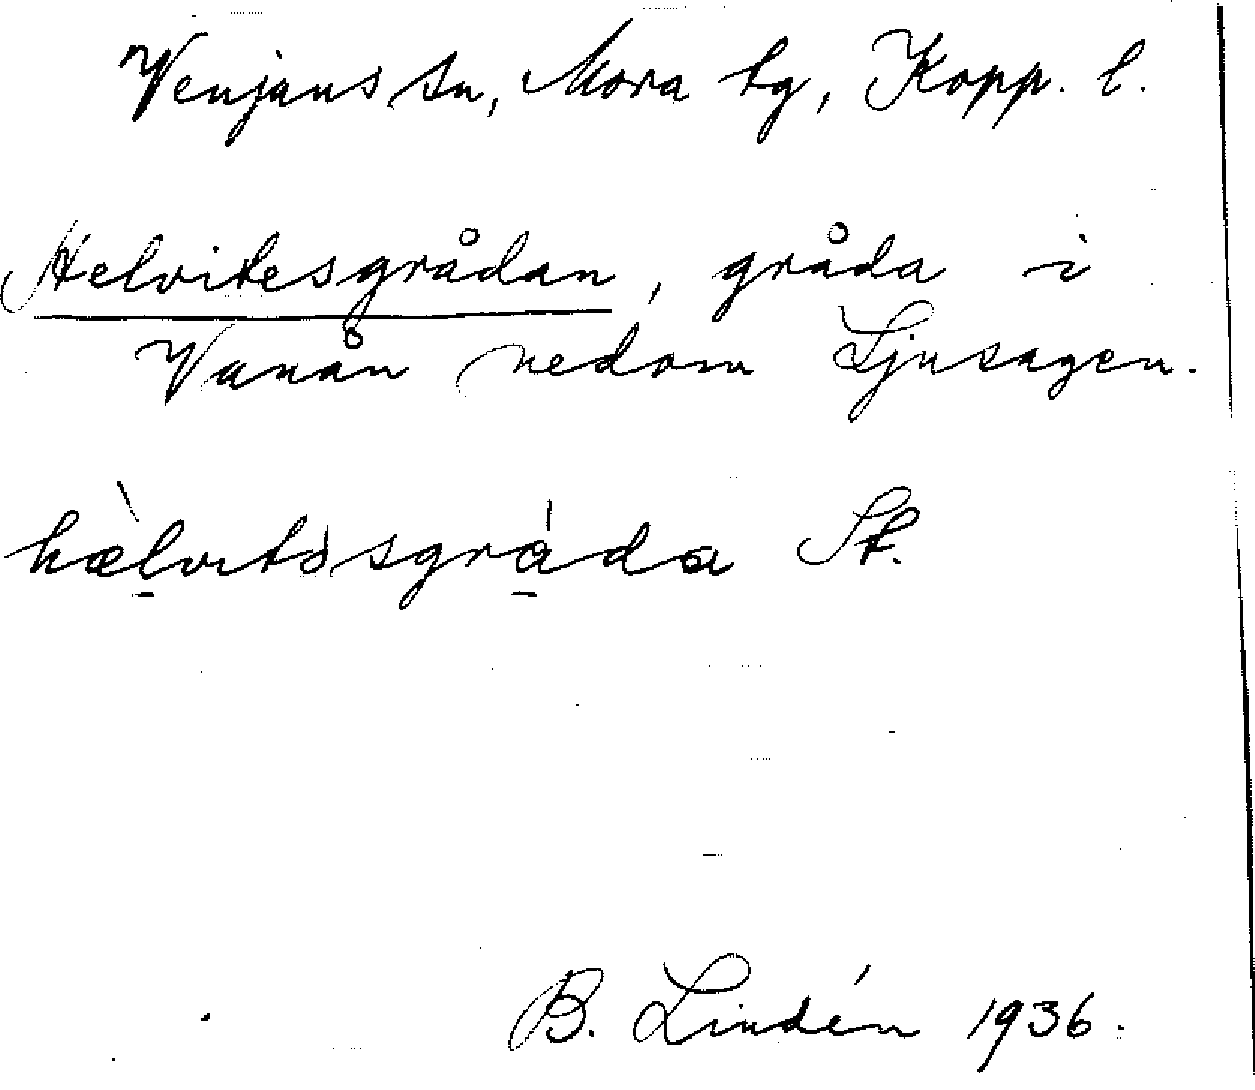 Venjans sn, Mora tg, Kopp. l.
Helvitesgrådan, gråda i
Vanån nedom Ljusagen.
hælvitəsgråda St.
B. Lindén 1936.